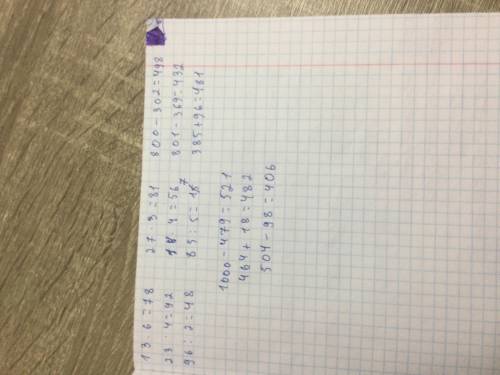 13 · 6 = 78 27 · 3 = 81 800 - 302 = 498
23 · 4 = 92 14 · 4 = 56 801 - 369 = 432
96 : 2 = 48 85 : 5 = 17 385 + 96 = 481
1000 - 479 = 521
464 + 18 = 482
504 - 98 = 406